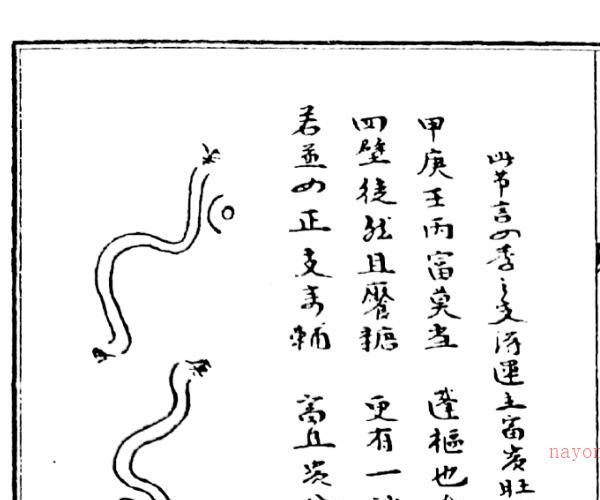 此节言四季之支得運主富贵旺
甲庚壬丙富莫当　蓬枢也
四壁徒然且餍糖　更有一
若並四正支未輔　富且贵
nayon